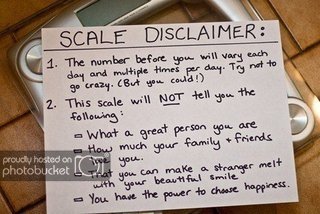 SCALE DISCLAIMER:
1. The number before you will vary each
day and multiple times per day. Try not to
go crazy. (But you could!)
2. This scale will NOT tell you the
following:
What a great person you are
How much your family + friends
you.
That you can make a stranger melt
with your beautiful smile
You have the power to choose happiness.
proudly hosted on
photobucket